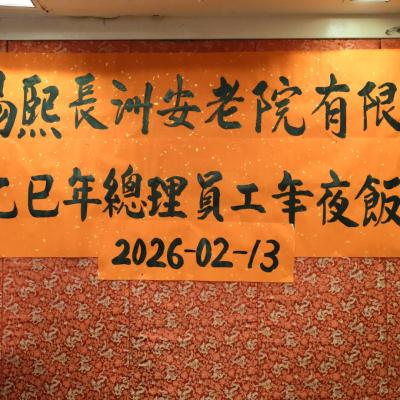 錫熙長洲安老院有限
乙巳年總理員工年夜飯
2026-02-13